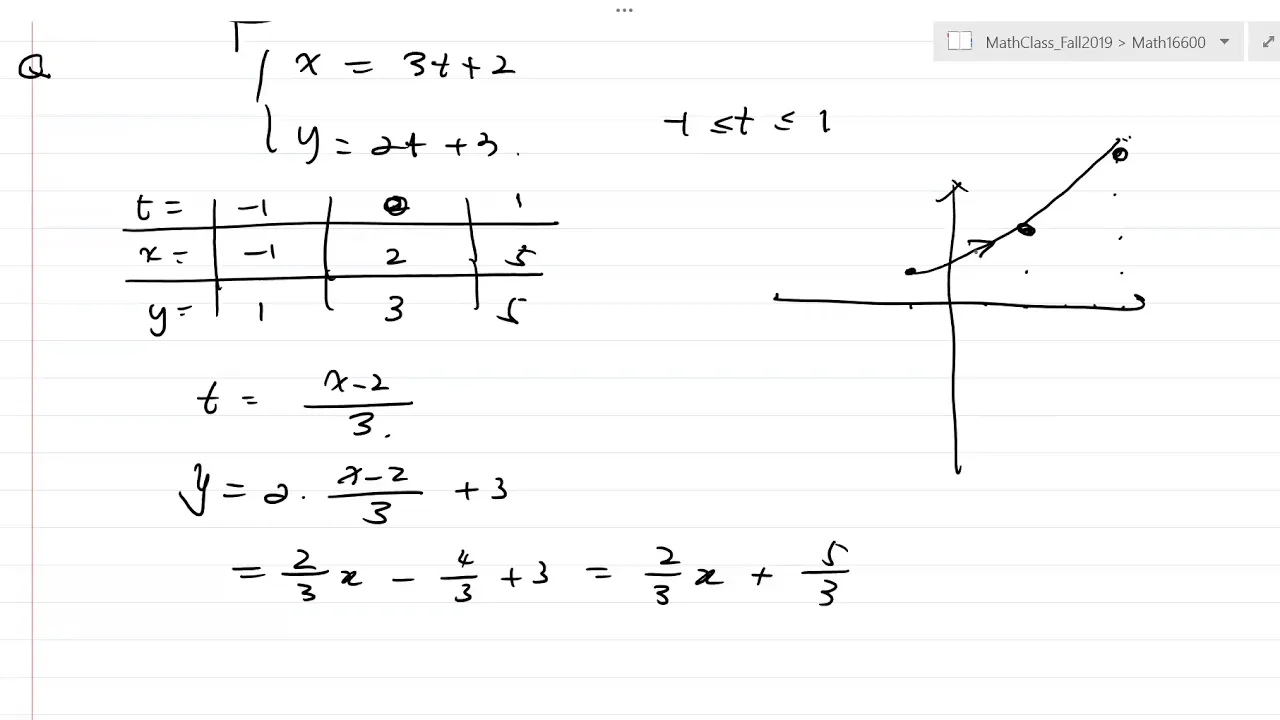 ...
MathClass_Fall2019 > Math16600
Q
x = 3t+2
y = 2t +3.
-1 ≤ t ≤ 1
t = -1 0 1
x = -1 2 5
y = 1 3 5
t = (x-2)/3.
y = 2 · (x-2)/3 + 3
= 2/3 x - 4/3 + 3 = 2/3 x + 5/3